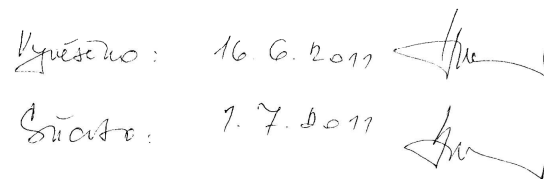 Vyvěšeno: 16. 6. 2011
Sňato: 1. 7. 2011